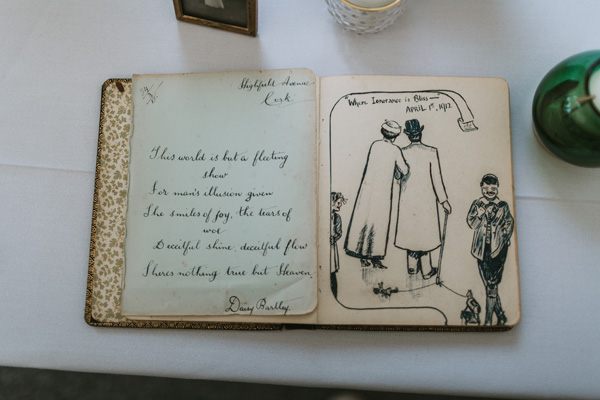 Highfield Avenue
Cork.
This world is but a fleeting
show
For man's illusion given
The smiles of joy, the tears of
woe
Deceitful shine, deceitful flow
There's nothing true but Heaven.
Daisy Bartley
"Where Ignorance is Bliss—
APRIL 1st, 1912.